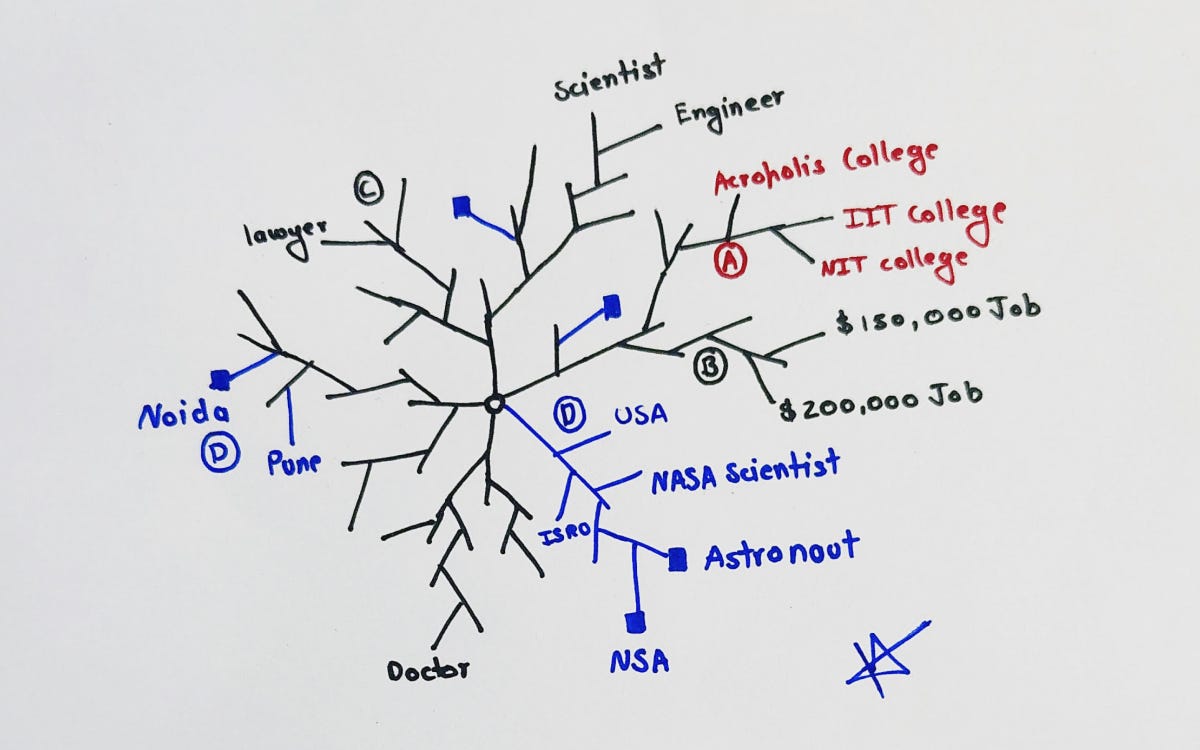 Scientist
Engineer
Acropolis College
C
lawyer
IIT College
A
NIT college
$150,000 Job
B
$200,000 Job
Noida
D
D
USA
Pune
NASA Scientist
ISRO
Astronout
NSA
Doctor